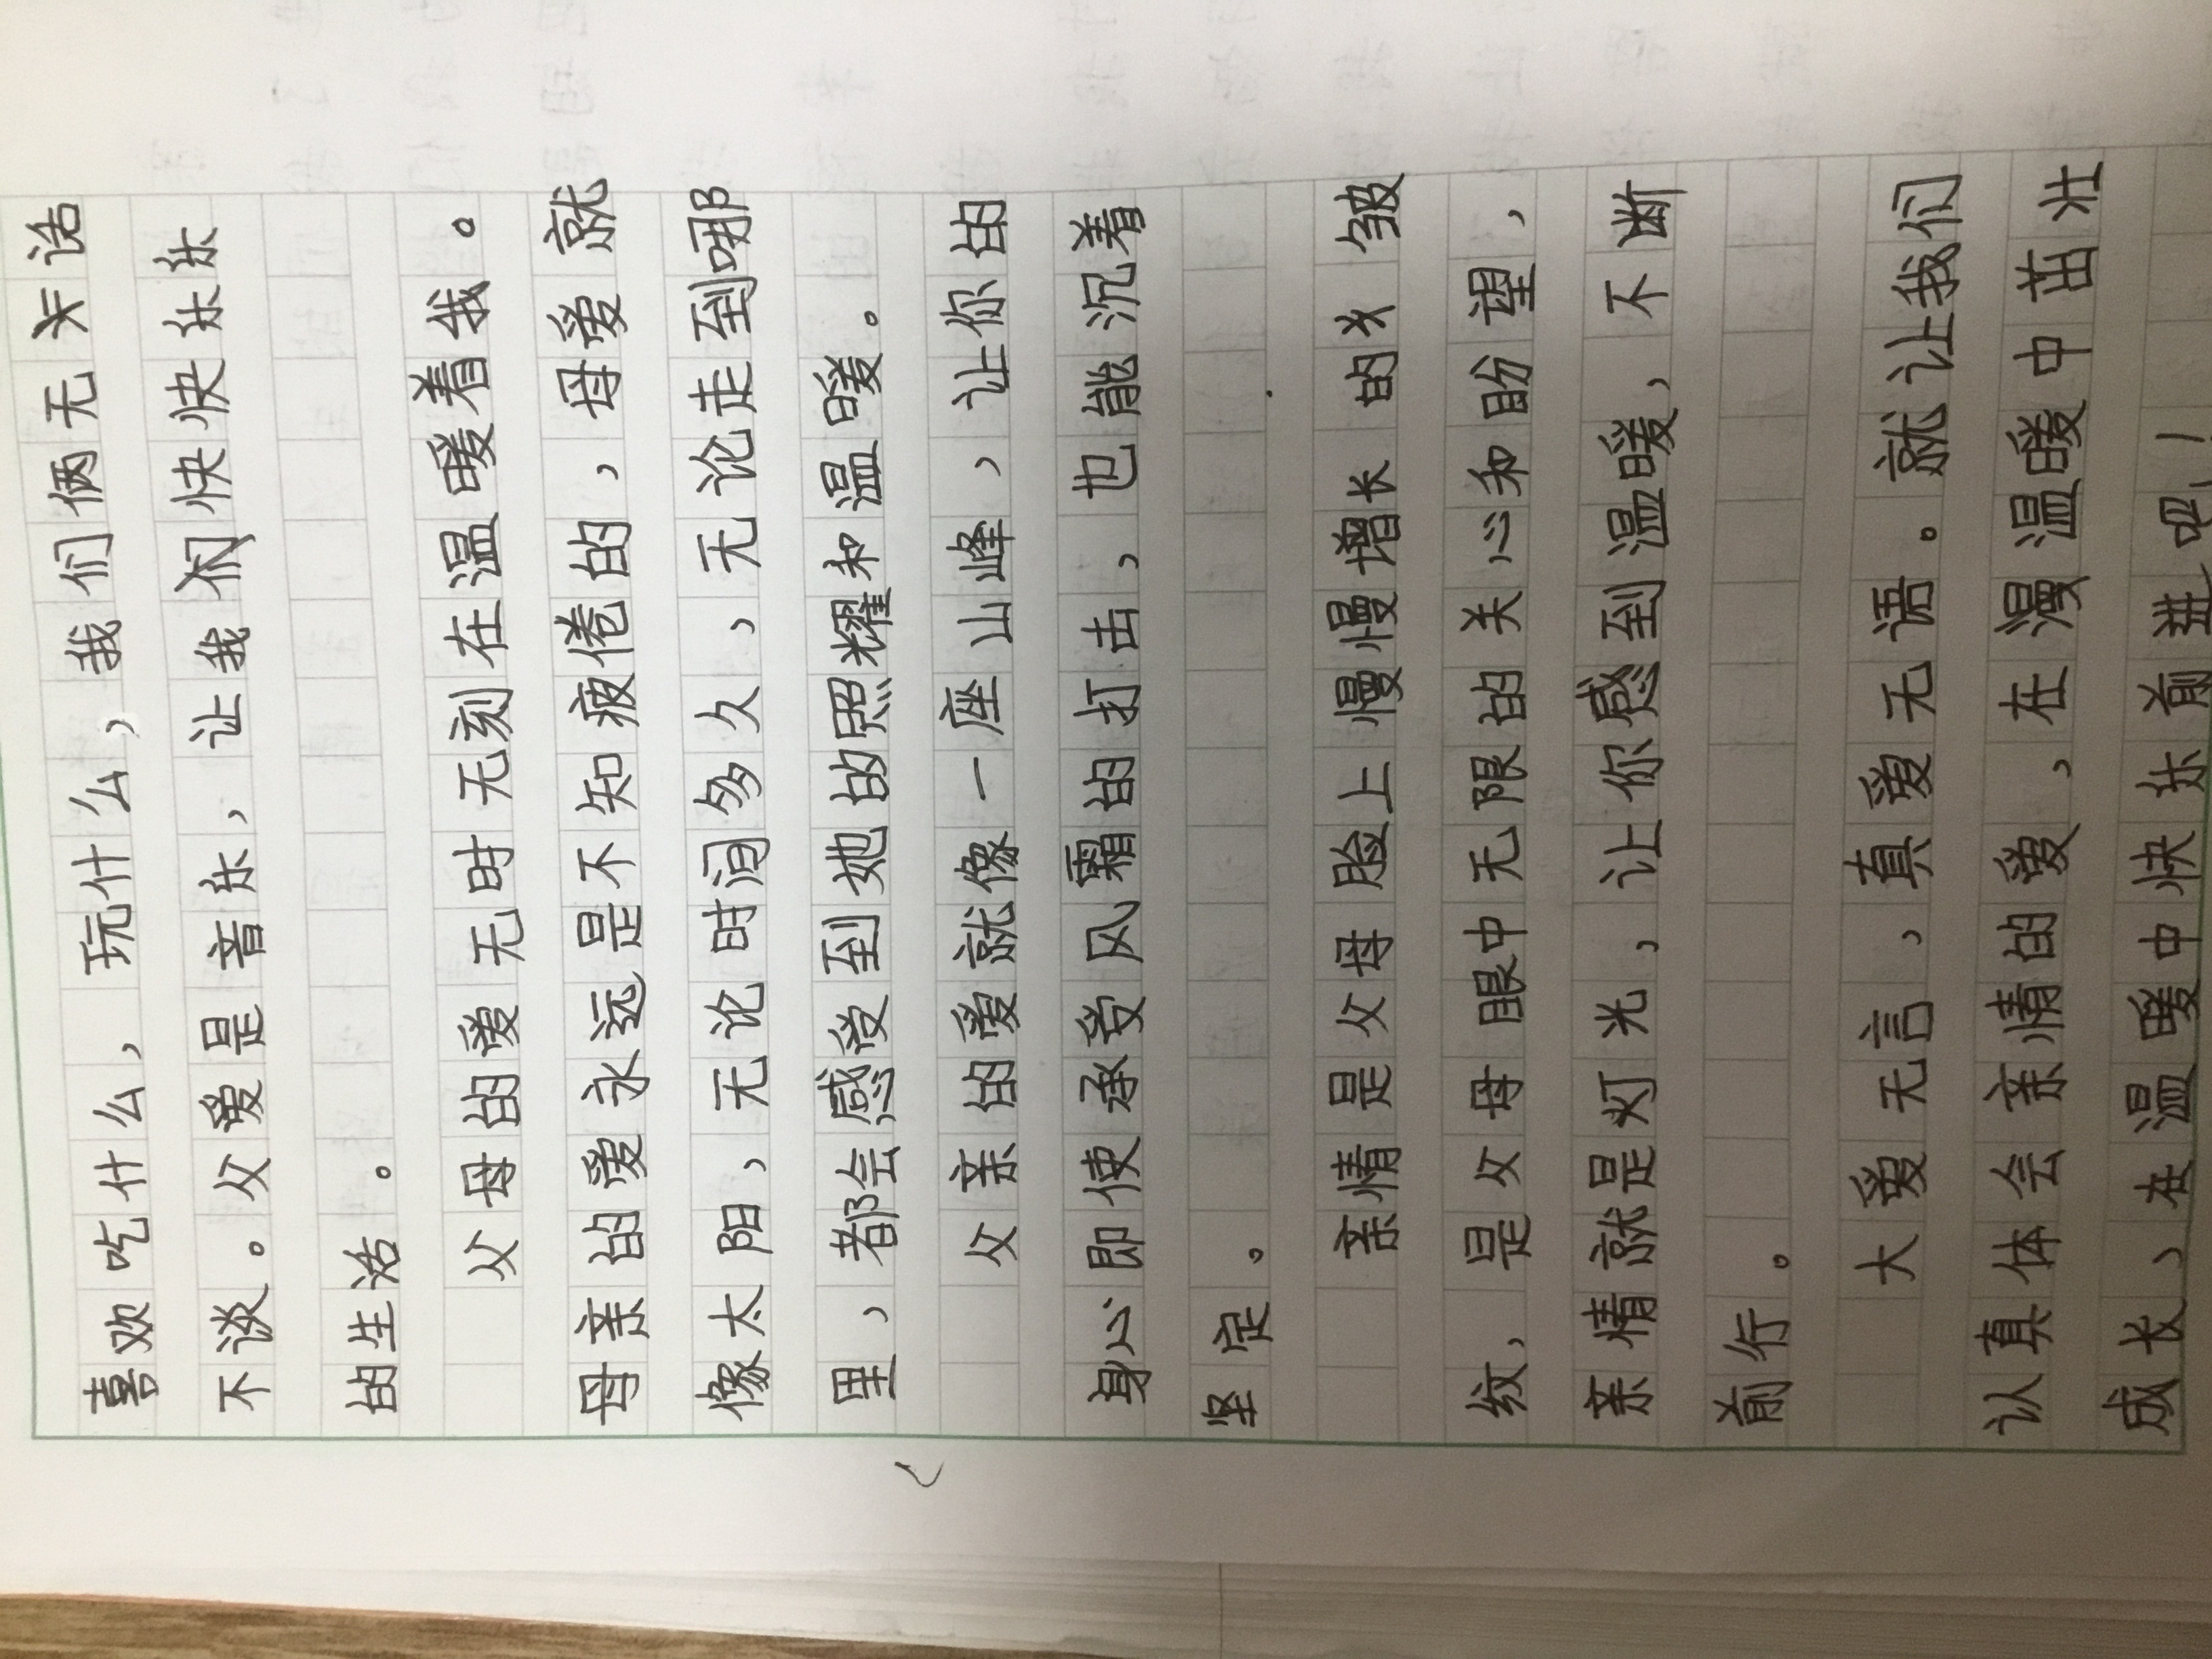 喜欢吃什么，玩什么，我们俩无话
不谈。父爱是音乐，让我快快乐乐
的生活。
父母的爱无时无刻在温暖着我。
母亲的爱永远是不知疲倦的，母爱就
像太阳，无论时间多久，无论走到哪
里，都会感受到她的照耀和温暖。
父亲的爱就像一座山峰，让你的
身心即使承受风霜的打击，也能沉着
坚定。
亲情是父母脸上慢慢增长的皱
纹，是父母眼中无限的关心和盼望，
亲情就是灯光，让你感到温暖，不断
前行。
大爱无言，真爱无语。就让我们
认真体会亲情的爱，在漫温暖中茁壮
成长，在温暖中快乐前进吧！